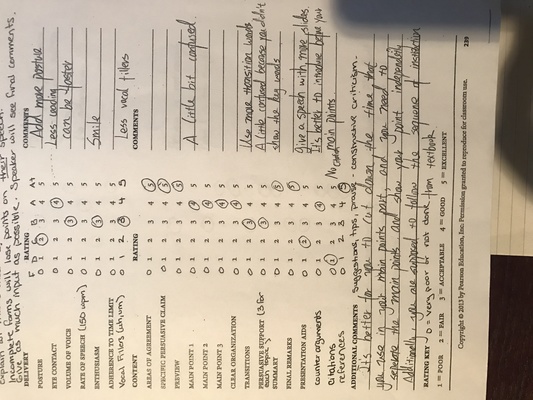 points on their speech.
Incomplete forms will lose
Give as much input as possible. Speaker will see final comments.
DELIVERY
RATING
COMMENTS
F D C B A A+
POSTURE
0 1 2 3 4 5
Add more positive
EYE CONTACT
0 1 2 3 4 5
Less reading
VOLUME OF VOICE
0 1 2 3 4 5
can be faster
RATE OF SPEECH (150 wpm)
0 1 2 3 4 5
ENTHUSIASM
0 1 2 3 4 5
Smile
ADHERENCE TO TIME LIMIT
0 1 2 3 4 5
Vocal Fillers (uh, um)
0 1 2 3 4 5
Less vocal fillers
CONTENT
RATING
COMMENTS
AREAS OF AGREEMENT
0 1 2 3 4 5
SPECIFIC PERSUASIVE CLAIM
0 1 2 3 4 5
PREVIEW
0 1 2 3 4 5
MAIN POINT 1
0 1 2 3 4 5
A little bit confused.
MAIN POINT 2
0 1 2 3 4 5
MAIN POINT 3
0 1 2 3 4 5
CLEAR ORGANIZATION
0 1 2 3 4 5
TRANSITIONS
0 1 2 3 4 5
Use more transition words
PERSUASIVE SUPPORT (3 for each topic)
0 1 2 3 4 5
A little confused because you didn't
SUMMARY
0 1 2 3 4 5
show the key words
FINAL REMARKS
0 1 2 3 4 5
PRESENTATION AIDS
0 1 2 3 4 5
give a speech with more slides.
counter arguments
0 1 2 3 4 5
It's better to introduce before your
citations
0 1 2 3 4 5
main points.
references
0 1 2 3 4 5
ADDITIONAL COMMENTS Suggestions, tips, praise - constructive criticism.
It's better for you to cut down the time that
you use in your main points part, and you need to
separate the 3 main points and show your point independently
Additionally, you are supposed to follow the sequence of instruction
from textbook.
RATING KEY 0 = very poor or not done
1 = POOR 2 = FAIR 3 = ACCEPTABLE 4 = GOOD 5 = EXCELLENT
Copyright © 2013 by Pearson Education, Inc. Permission granted to reproduce for classroom use.
239